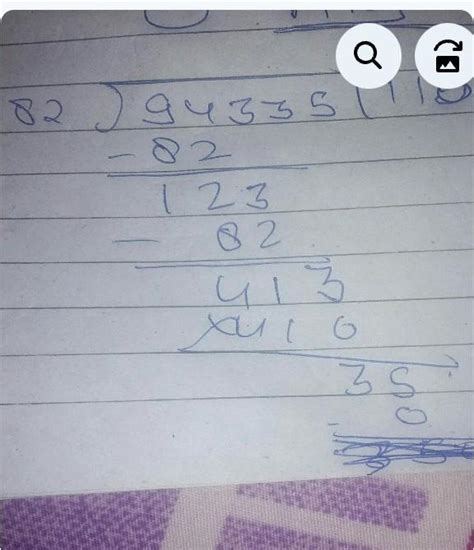 82 ) 94335 ( 110
- 82
123
- 82
413
410
35
- 0